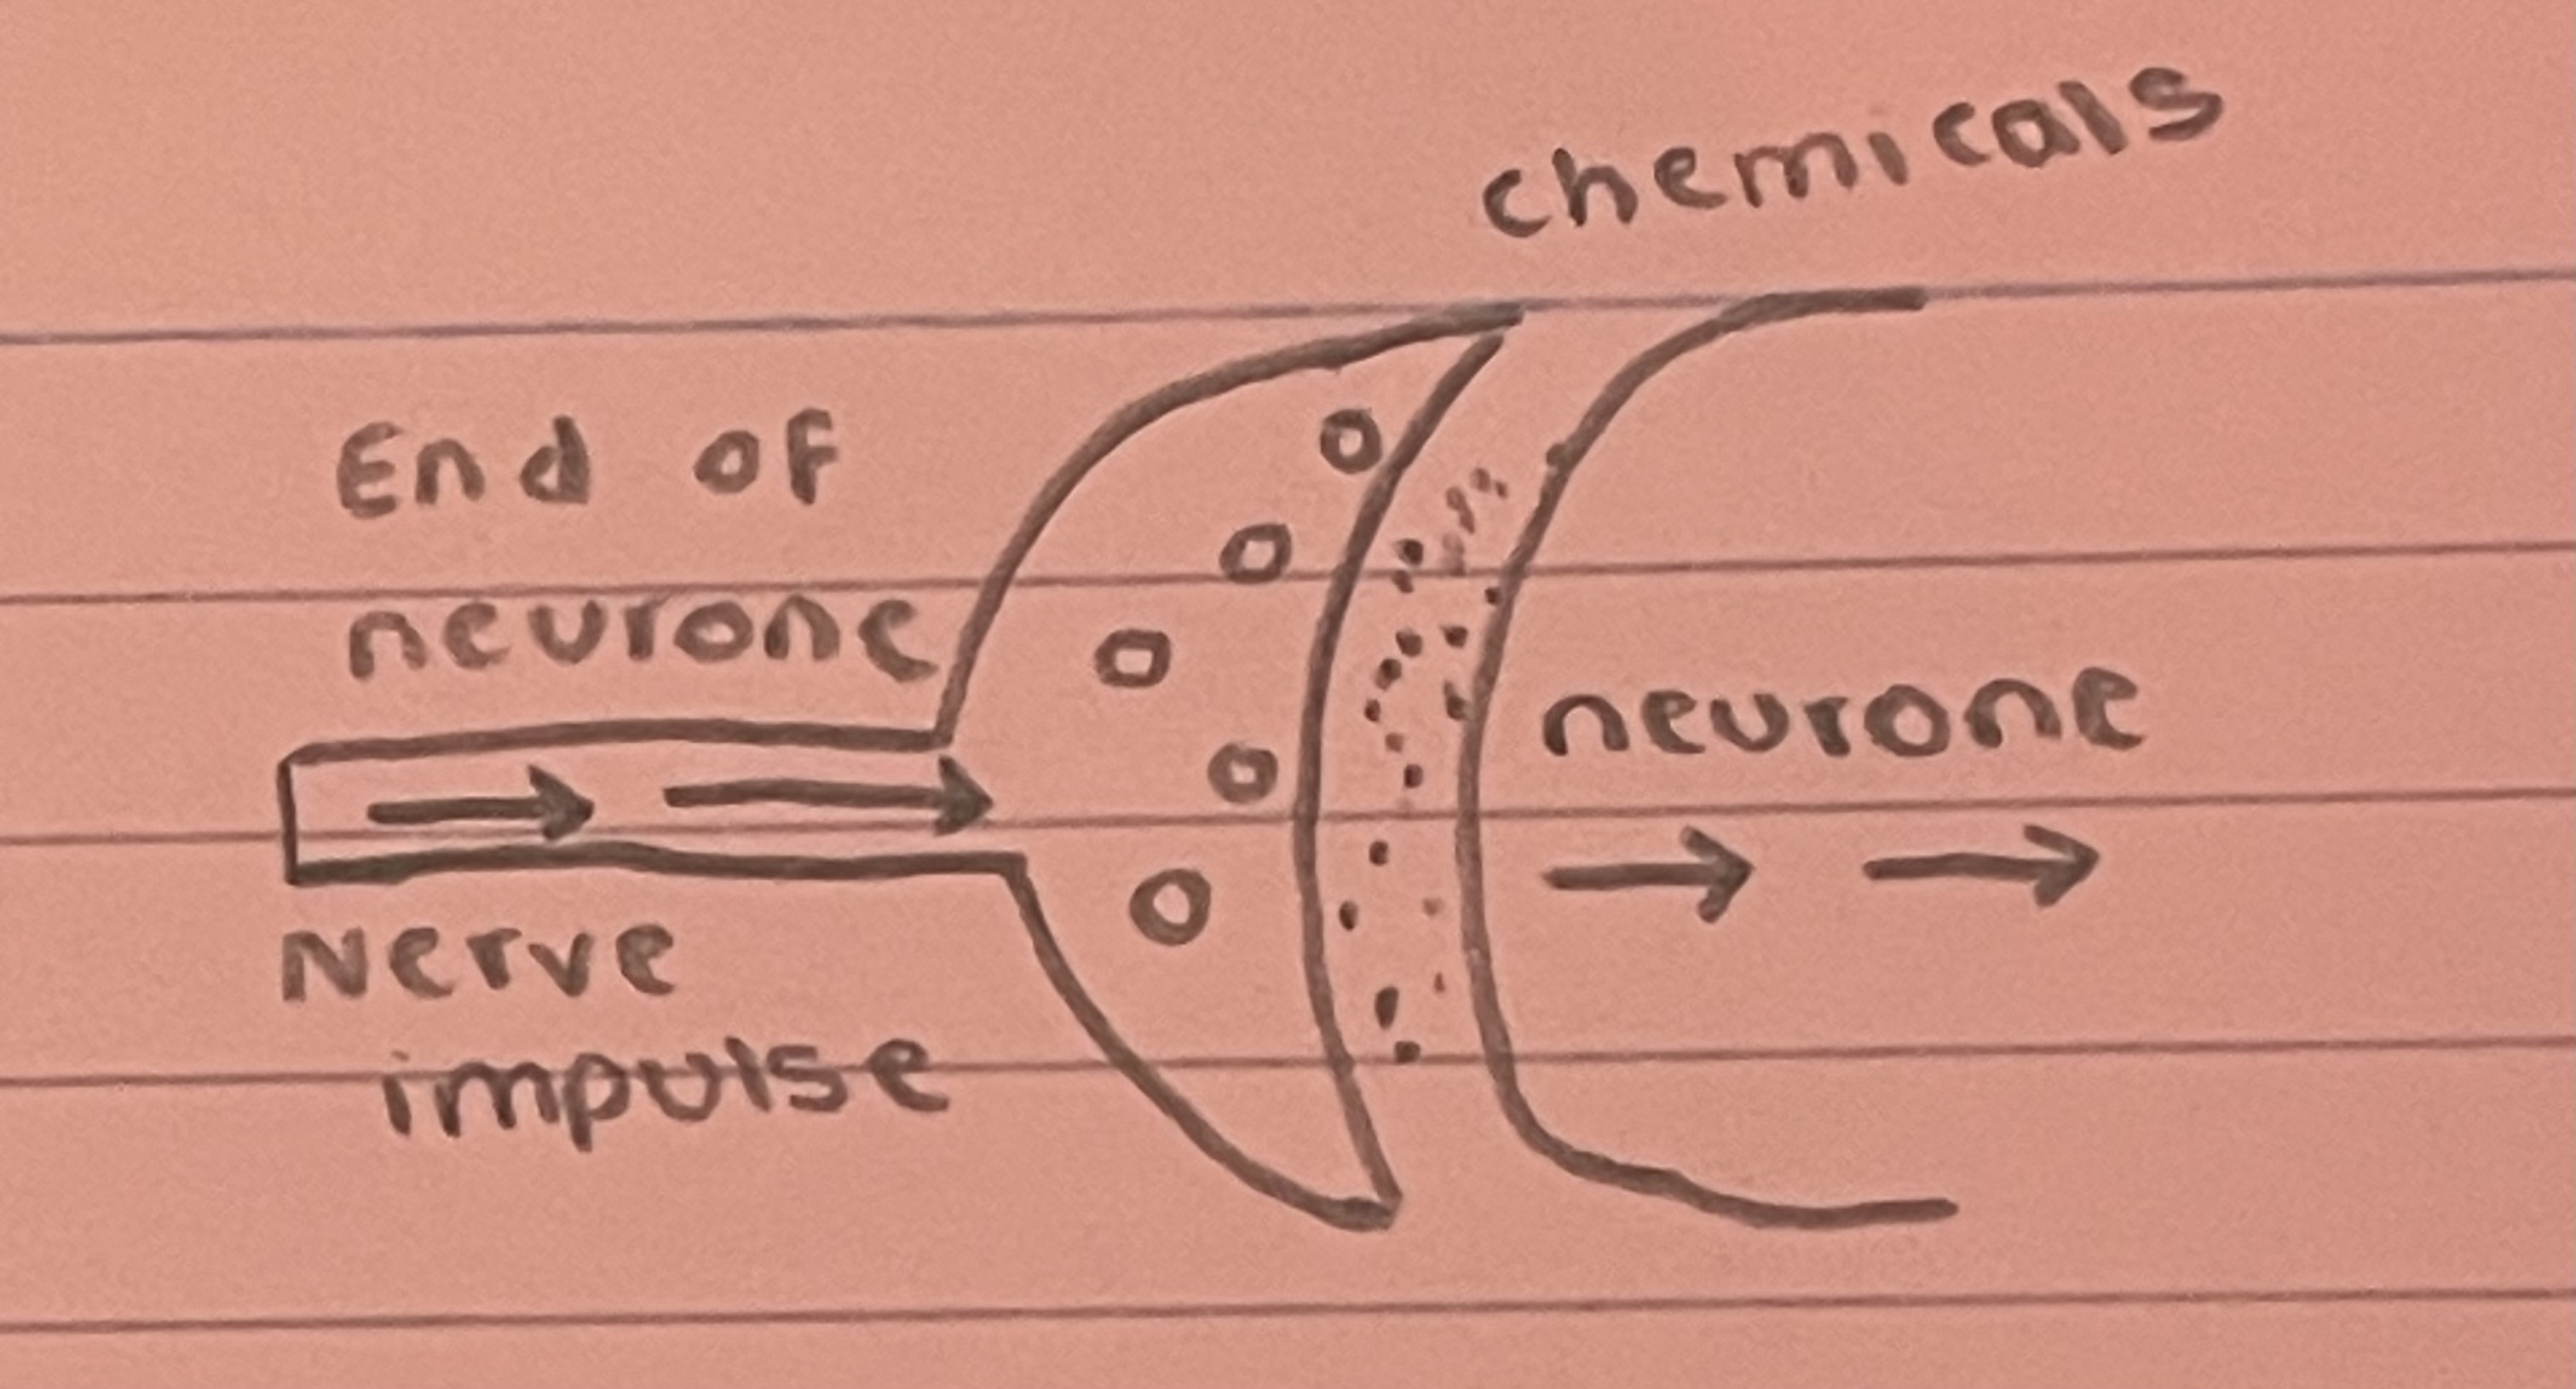 chemicals
End of
neurone
neurone
Nerve
impulse